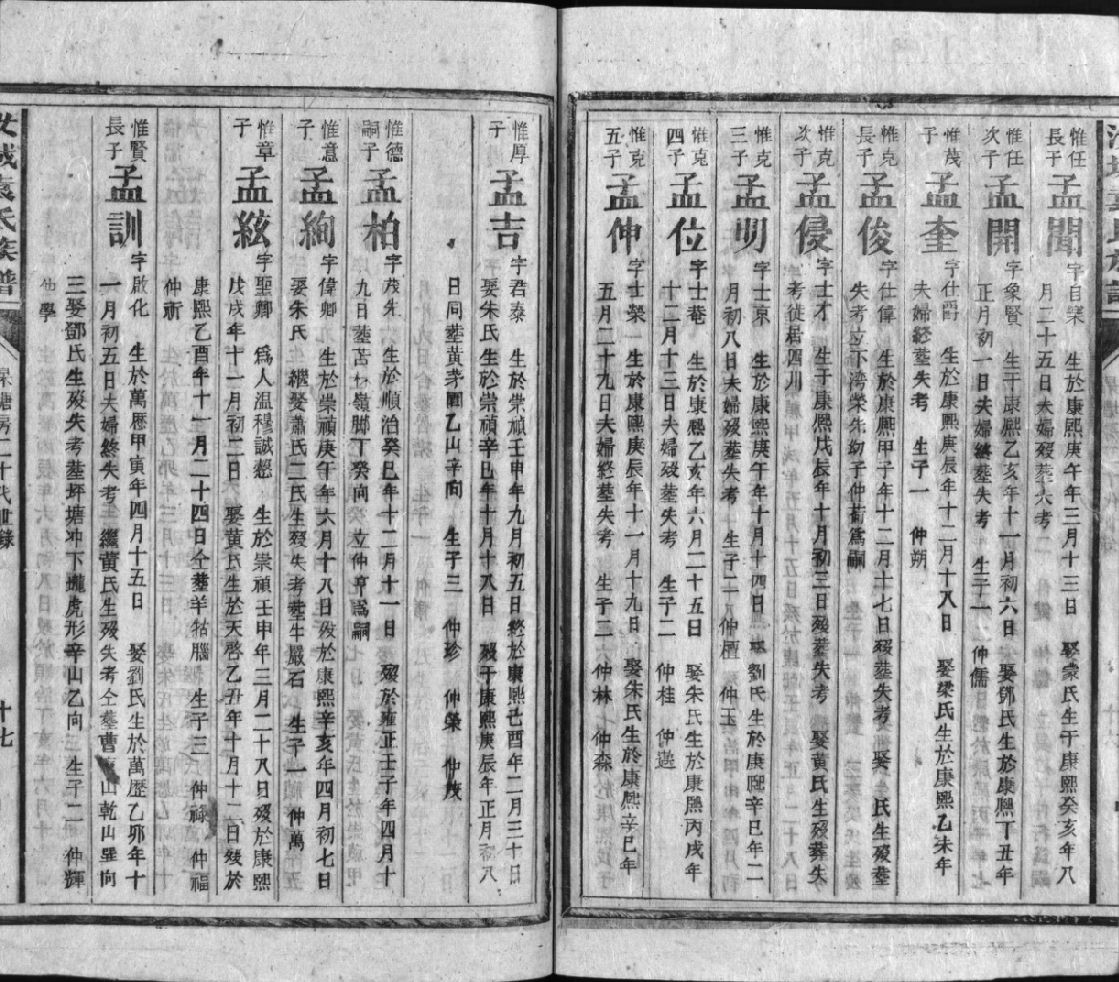 惟任長子 孟聞 字自榮 生於康熙庚午年三月十三日 娶蒙氏生于康熙癸亥年八
月二十五日夫婦歿塟失考
惟任次子 孟開 字象賢 生于康熙乙亥年十一月初六日 娶鄧氏生於康熙丁丑年
正月初一日夫婦終塟失考 生子一 仲儒
惟茂子 孟奎 字仕爵 生於康熙庚辰年十二月十八日 娶梁氏生於康熙乙未年
夫婦終塟失考 生子一 仲朔
惟克長子 孟俊 字仕偉 生於康熙甲子年十二月十七日歿塟失考 娶 氏生歿塟
失考立下湾榮先幼子仲 爲嗣
惟克次子 孟優 字士才 生于康熙戊辰年十月初三日歿塟失考 娶黃氏生歿葬失
考徒居四川
惟克三子 孟明 字士京 生於康熙庚午年十月十四日 娶劉氏生於康熙辛巳年二
月初八日夫婦歿塟失考 生子二 仲檀 仲玉
惟克四子 孟位 字士菴 生於康熙乙亥年六月二十五日 娶朱氏生於康熙丙戌年
十二月十三日夫婦歿塟失考 生子二 仲桂 仲遜
惟克五子 孟伸 字士榮 生於康熙庚辰年十一月十九日 娶朱氏生於康熙辛巳年
五月二十九日夫婦終塟失考 生子二 仲林 仲森
惟厚子 孟吉 字君泰 生於崇禎壬申年九月初五日終於康熙己酉年二月三十日
娶朱氏生於崇禎辛巳年十月十八日 歿于康熙庚辰年正月初八
日同塟黃茅 乙山辛向 生子三 仲珍 仲榮 仲茂
惟德嗣子 孟柏 字茂先 生於順治癸巳年十二月十一日 歿於雍正壬子年四月十
九日塟苦 嶺脚丁癸向 立仲亨爲嗣
惟意子 孟絢 字偉卿 生於崇禎庚午年六月十八日歿於康熙辛亥年四月初七日
娶朱氏 繼娶蕭氏二氏生歿失考塟牛嚴石 生子一 仲萬
惟章子 孟絃 字聖卿 爲人温穆誠慤 生於崇禎壬申年三月二十八日歿於康熙
戊戌年十一月初二日 娶黃氏生於天啓乙丑年十月十二日歿於
康熙乙酉年十一月二十四日仝塟羊牯腦 生子三 仲祿 仲福
仲祈
惟賢長子 孟訓 字啟化 生於萬歷甲寅年四月十五日 娶劉氏生於萬歷乙卯年十
一月初五日夫婦終失考 繼黃氏生歿失考仝塟曹 山乾山巽向
三娶鄧氏生歿失考塟坪塘冲下壠虎形辛山乙向 生子二 仲輝
仲學
汝城袁氏族譜
二十代世錄
十七